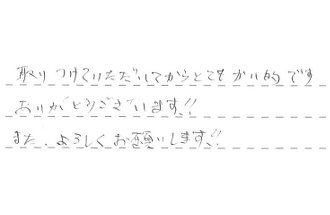 取りつけていただいてからとてもかい的です
ありがとうございます!!
また、よろしくお願いします!!